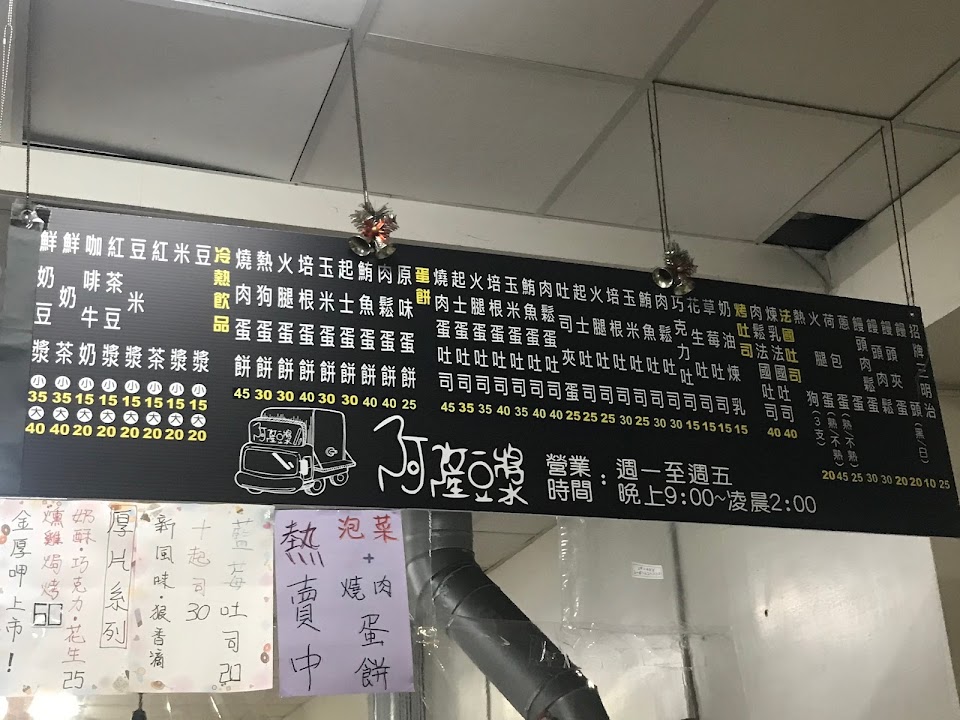 招牌三明治 25
饅頭(黑/白) 10
饅頭夾蛋 20
饅頭肉鬆蛋
荷包蛋(熟/不熟)
熱狗(3支) 20
法國吐司
煉乳法國吐司 40
肉鬆法國吐司 40
烤吐司
奶油煉乳 15
草莓吐司 15
花生吐司 15
巧克力吐司 15
肉鬆吐司 30
鮪魚吐司 30
玉米吐司 25
培根吐司 30
火腿吐司 25
起士吐司 25
吐司夾蛋 25
肉鬆蛋吐司 40
鮪魚蛋吐司 40
玉米蛋吐司 35
培根蛋吐司 40
火腿蛋吐司 35
起士蛋吐司 35
燒肉蛋吐司 45
蛋餅
原味蛋餅 25
肉鬆蛋餅 40
鮪魚蛋餅 40
起士蛋餅 30
玉米蛋餅 30
培根蛋餅 40
火腿蛋餅 30
熱狗蛋餅 30
燒肉蛋餅 45
冷熱飲品
豆漿 小15 大20
米漿 小15 大20
紅茶 小15 大20
豆米漿 小15 大20
紅茶豆漿 小15 大20
咖啡牛奶 小15 大20
鮮奶茶 小15 大40
鮮奶豆漿 小35 大40
阿產豆漿
營業時間：週一至週五
晚上9:00~凌晨2:00
泡菜+燒肉蛋餅
熱賣中
藍莓吐司20
十起司30
新風味·狠香滴
厚片系列
奶酥·巧克力·花生25
燻雞焗烤50
金厚呷上市！